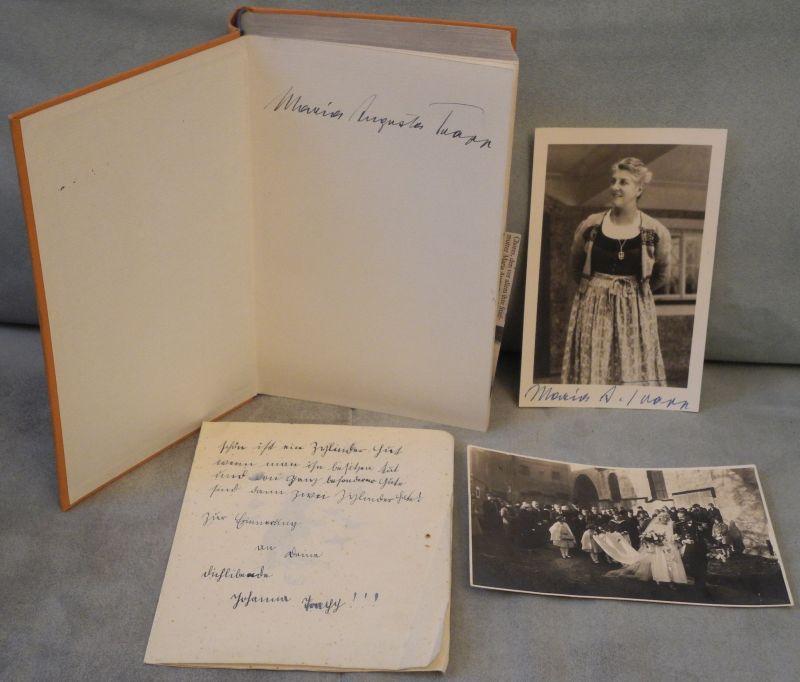 Maria Augusta Trapp
Maria A. Trapp
schön ist ein Zylinder Hut
wenn man ihn besitzen tut
und von ganz besonderer Güte
sind dann zwei Zylinder Hüte!
Zur Erinnerung
an Deine
Dichlibende
Johanna Trapp!!!